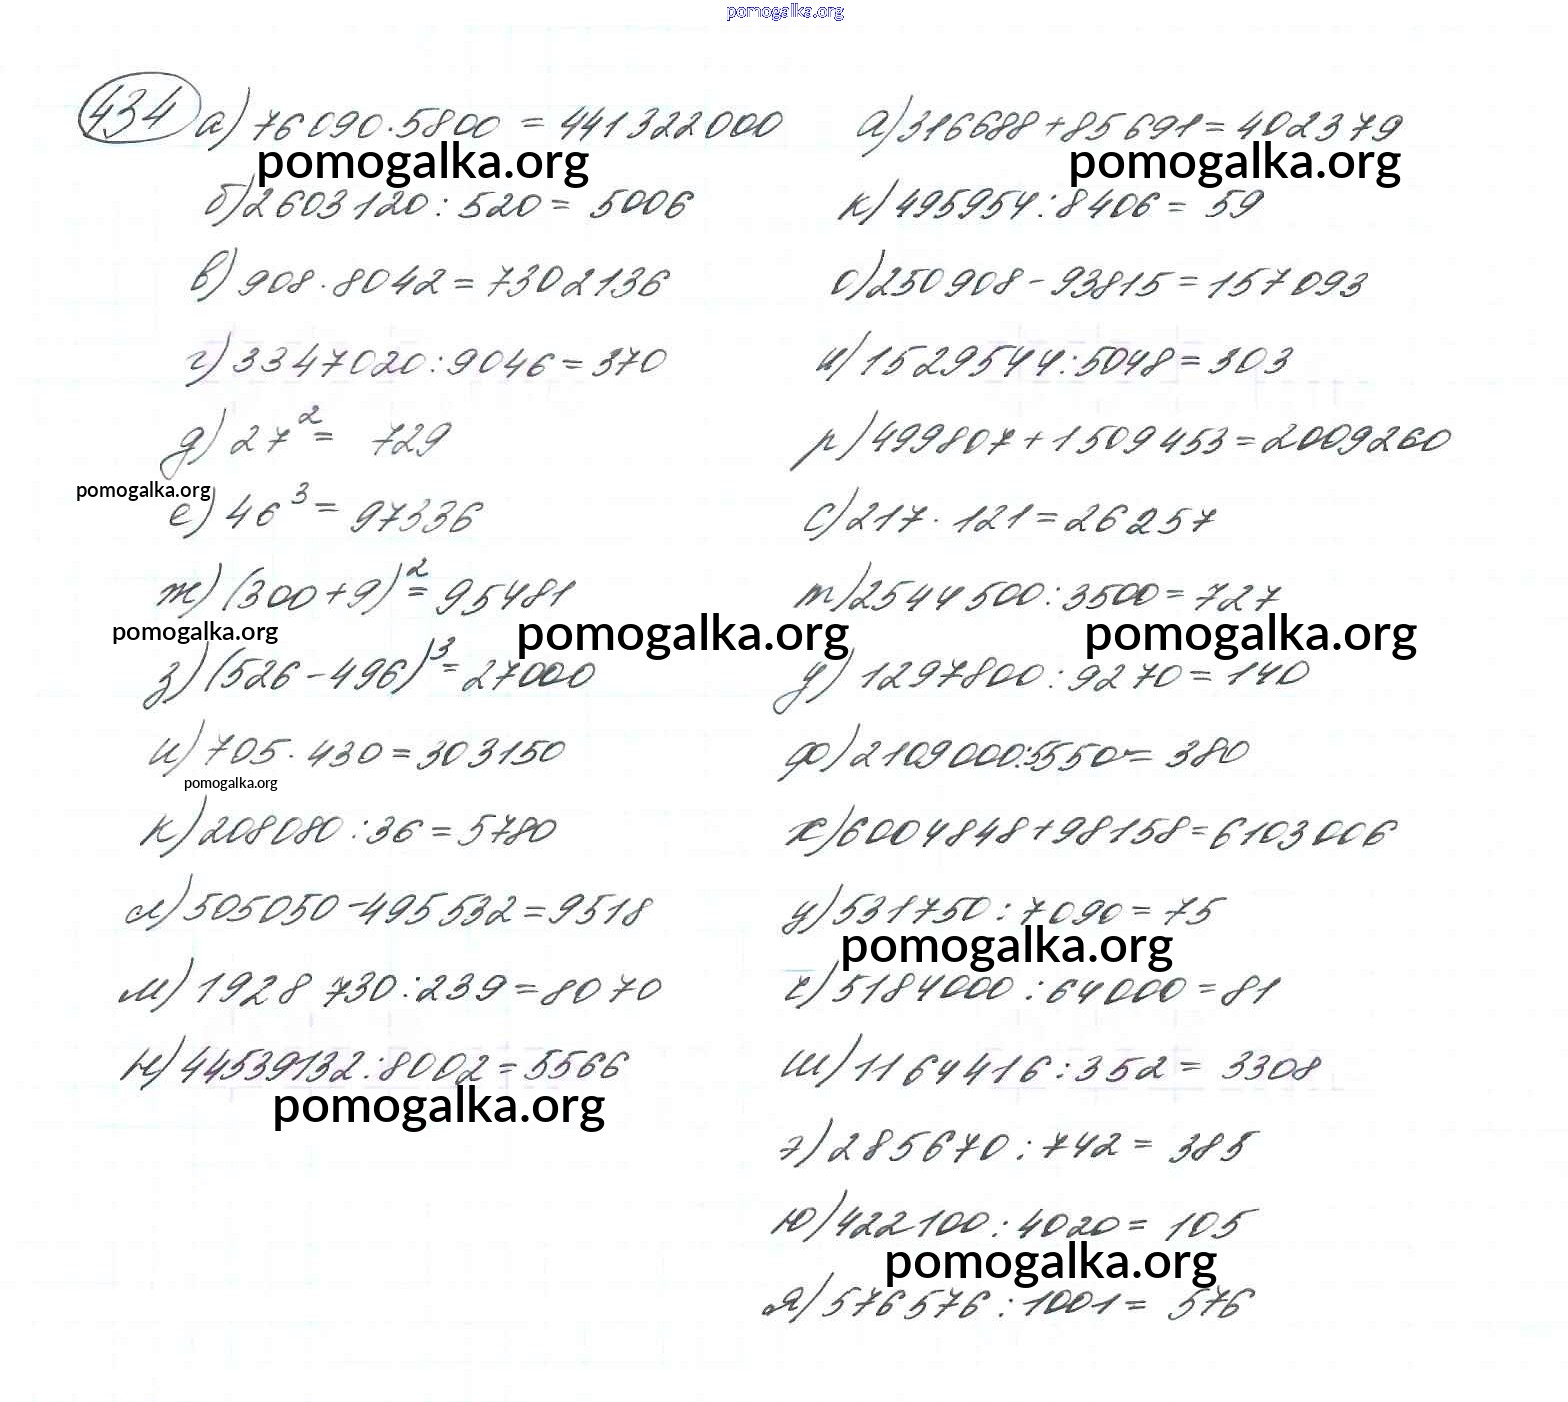 pomogalka.org
434 а) 76090·5800 = 441322000
pomogalka.org
б) 2603120 : 520 = 5006
в) 908·8042 = 7302136
г) 3347020 : 9046 = 370
д) 27² = 729
pomogalka.org
е) 46³ = 97336
ж) (300+9)² = 95481
pomogalka.org
pomogalka.org
з) (526-496)³ = 27000
и) 705·430 = 303150
pomogalka.org
к) 208080 : 36 = 5780
л) 505050-495532=9518
м) 1928730 : 239 = 8070
н) 44539132 : 8002 = 5566
pomogalka.org
а) 316688+85691 = 402379
pomogalka.org
к) 495954 : 8406 = 59
о) 250908-93815 = 157093
и) 1529544 : 5048 = 303
р) 499807+1509453=2009260
с) 217·121 = 26257
т) 2544500 : 3500 = 727
pomogalka.org
у) 1297800 : 9270 = 140
ф) 2109000:5550 = 380
х) 6004848+98158=6103006
ц) 531750 : 7090 = 75
pomogalka.org
ч) 5184000 : 64000 = 81
ш) 1164416 : 352 = 3308
э) 285670 : 742 = 385
ю) 422100 : 4020 = 105
pomogalka.org
я) 576576 : 1001 = 576